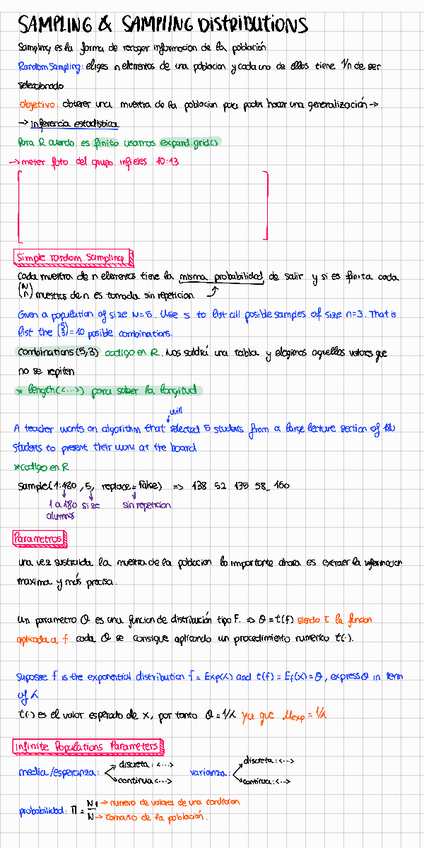 SAMPLING & SAMPLING DISTRIBUTIONS
Sampling es la forma de recoger informacion de la población
Random Sampling: eliges n elementos de una poblacion y cada uno de ellos tiene 1/n de ser
seleccionado
objetivo: obtener una muestra de la poblacion para poder hacer una generalización →
→ inferencia estadística
Para R cuando es finito usamos expand.grid()
→ meter foto del grupo infieles 10:13
Simple random sampling
cada muestra de n elementos tiene la misma probabilidad de salir y si es finita cada
(N n) muestras de n es tomada sin repeticion
Given a population of size N=5. Use S to list all posible samples of size n=3. That is
list the (5 3)=10 posible combinations.
combinations(5,3) codigo en R. Nos saldrá una tabla y elegimos aquellos valores que
no se repiten
* length(<...>) para saber la longitud
will
A teacher wants an algorithm that selected 5 students from a large lecture section of 180
students to present their work at the board
*codigo en R
Sample(1:180, 5, replace=False) => 138 52 139 58 160
1 a 180 size sin repeticion
alumnos
Parametros
una vez sustraida la muestra de la poblacion lo importante ahora es extraer la informacion
maxima y más precisa.
un parametro θ es una funcion de distribución tipo F. => θ = t(f) siendo t la funcion
aplicada a f cada θ se consigue aplicando un procedimiento numerico t(·).
Suposse f is the exponential distribution f = Exp(λ) and t(f) = Ef(x) = θ, express θ in term
of λ
t(·) es el valor esperado de x, por tanto θ = 1/λ ya que μexp = 1/λ
Infinite Populations Parameters
media/esperanza: discreta: <...> varianza: discreta: <...>
continua <...> continua: <...>
probabilidad: Π = N1 → numero de valores de una condicion
N → tamaño de la población.